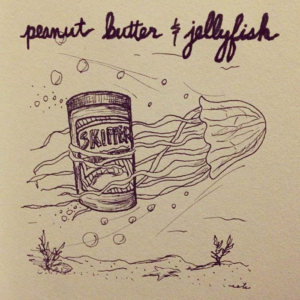 peanut butter & jellyfish
SKIPPER